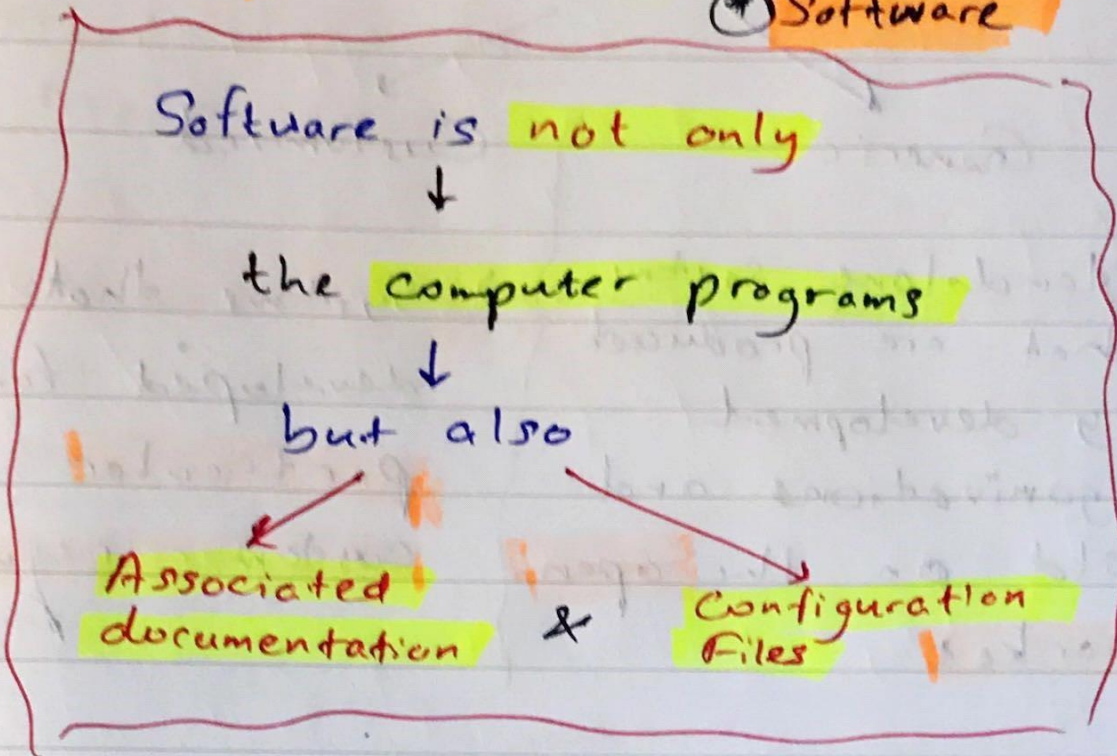 Software
Software is not only
↓
the computer programs
↓
but also
Associated
documentation
&
Configuration
Files